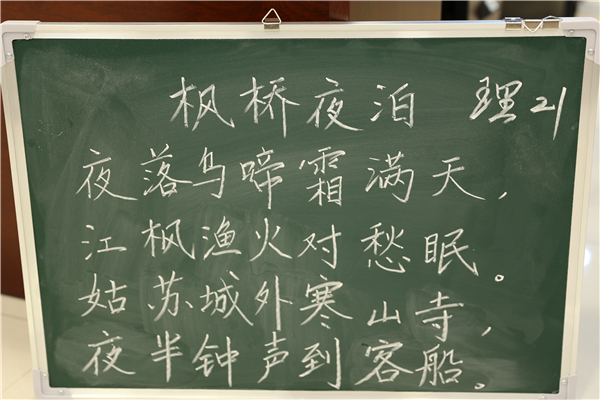 枫桥夜泊 理21
夜落乌啼霜满天,
江枫渔火对愁眠。
姑苏城外寒山寺,
夜半钟声到客船。